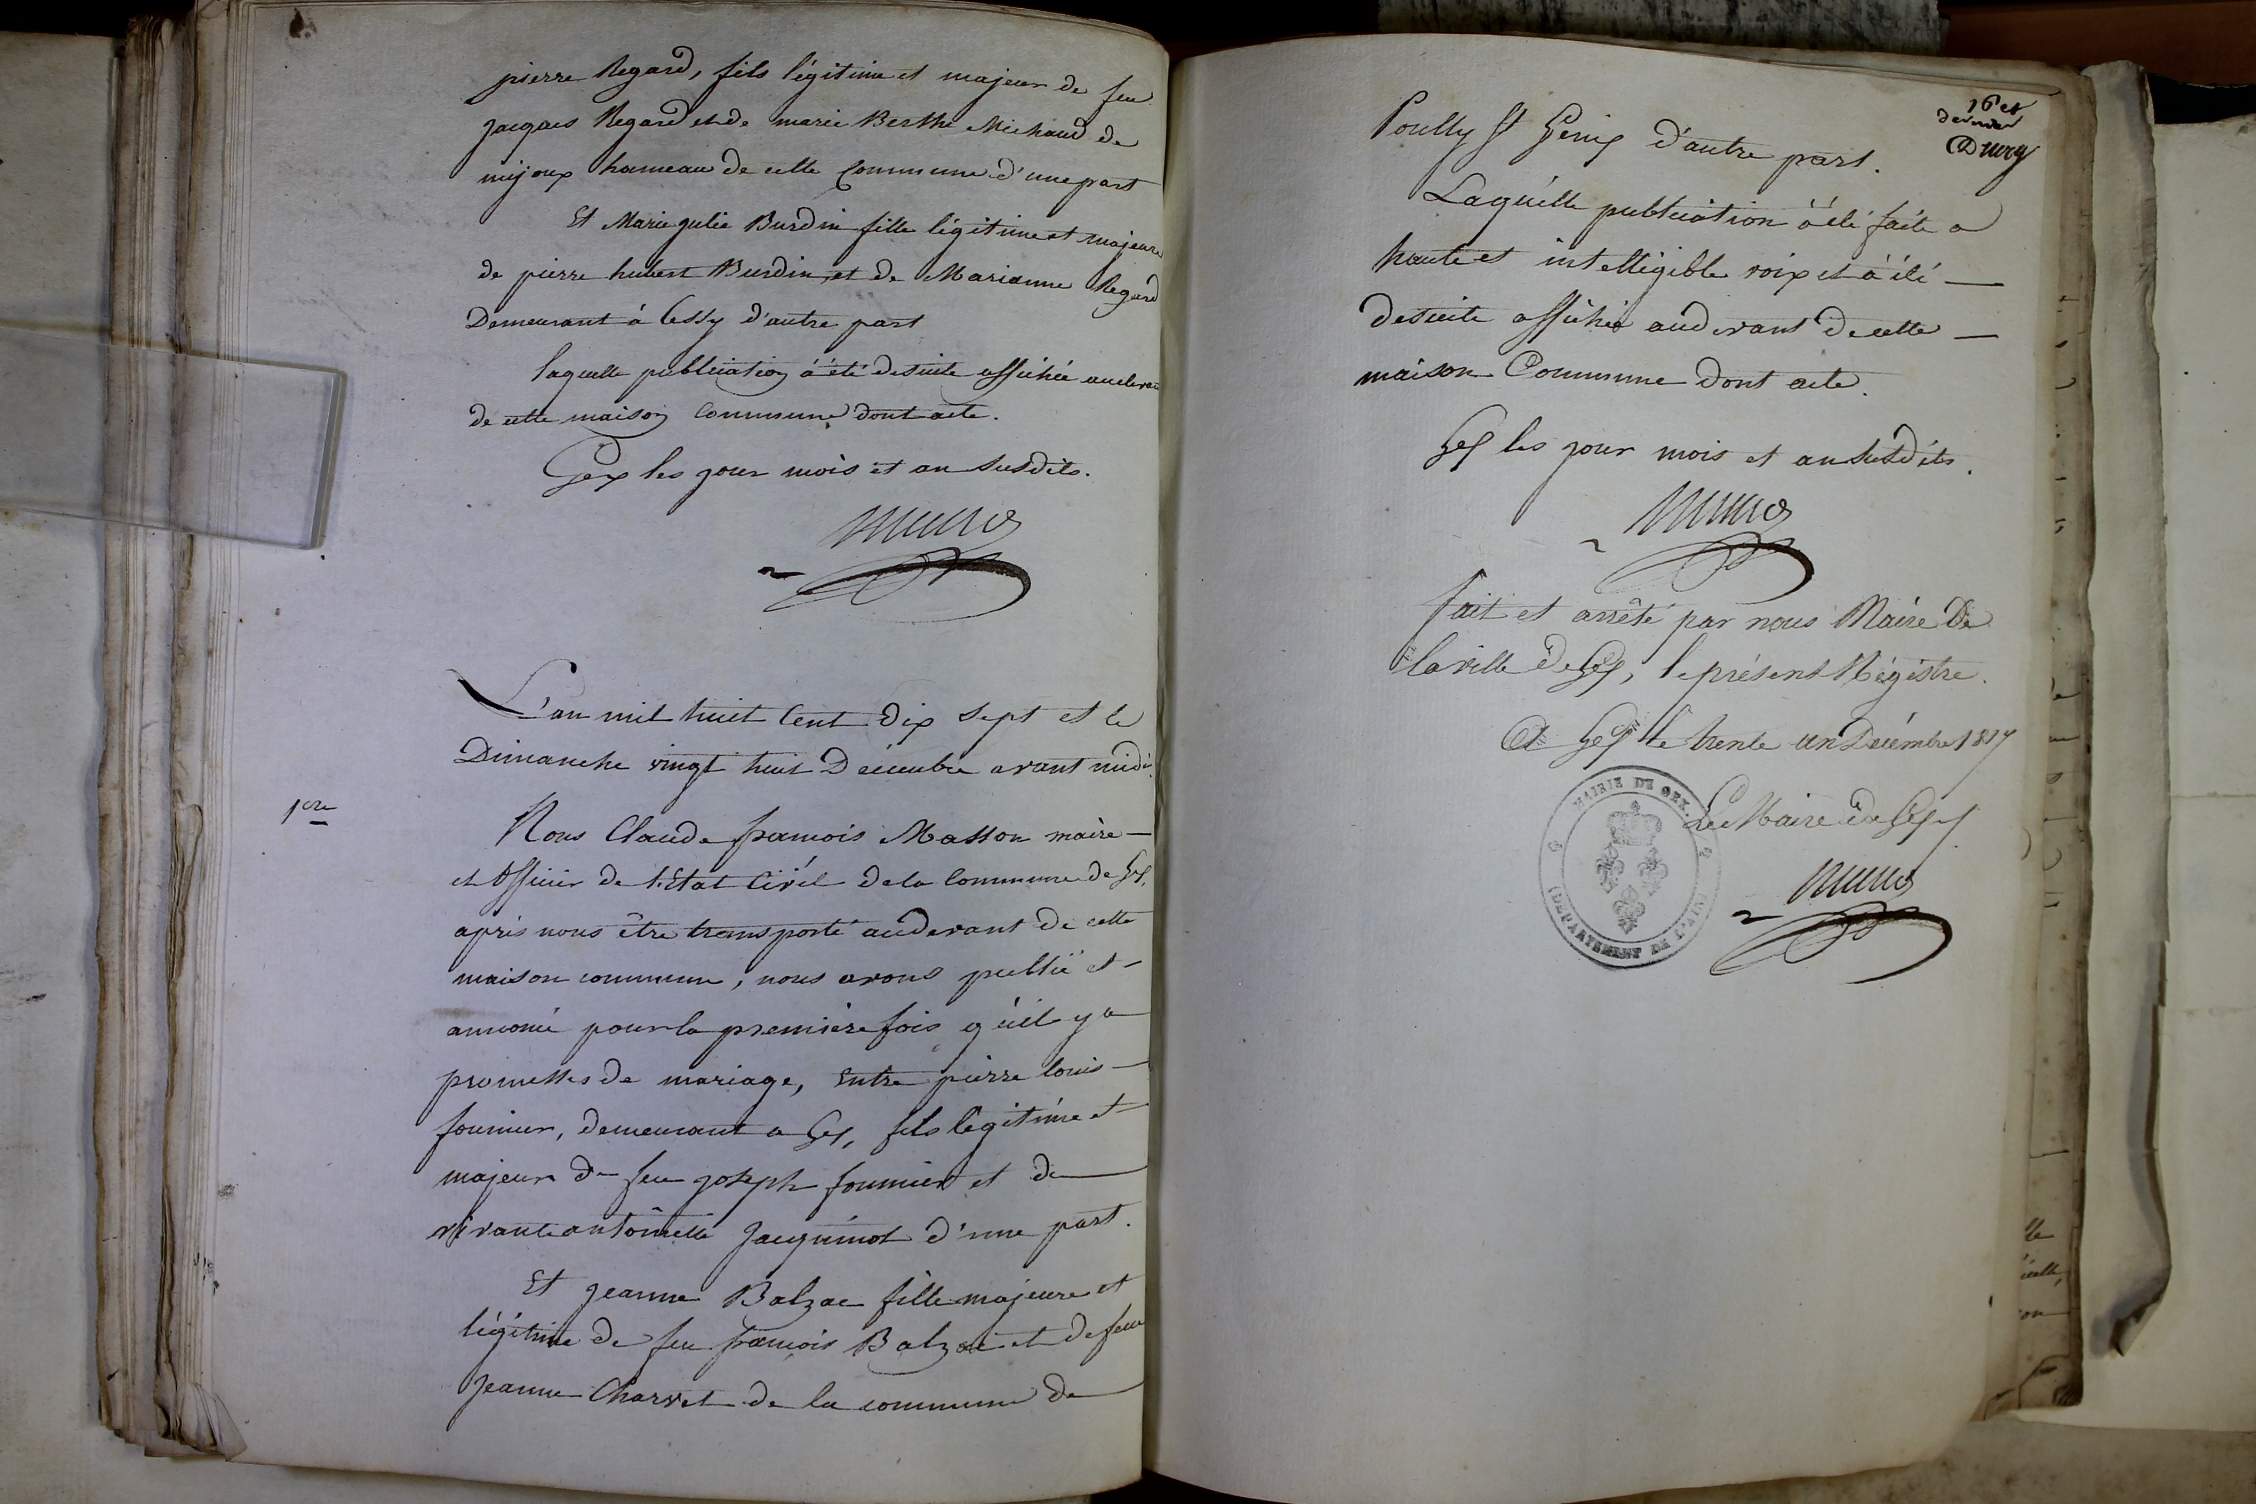 pierre Regard, fils légitime et majeur de feu
jacques Regard et de marie Berthe Michaud de
mijoux hameau de cette Commune d'une part
Et Marie julie Burdin fille légitime et majeure
de pierre hubert Burdin et de Marianne Regard
Demeurant à Cessy d'autre part
laquelle publication à été de suite affichée audevant
de cette maison Commune dont acte.
Gex les jour mois et an susdits.
L'an mil huit Cent Dix sept et le
Dimanche vingt huit Décembre avant midi.
1ere
Nous Claude francois Masson maire
et Officier de l'Etat Civil de la Commune de Gex,
après nous être transporté audevant de cette
maison commune, nous avons publié et
annoncé pour la première fois qu'il y a
promesses de mariage, Entre pierre louis
fournier, demeurant a Gex, fils légitime et
majeur de feu joseph fournier et de
vivante antoinette Jacquinot d'une part.
Et jeanne Balzac fille majeure et
légitime de feu francois Balzac et de feue
jeanne Charvet de la commune de
16 et
dernier
Pouilly St Genix d'autre part.
Laquelle publication à été faite a
haute et intelligible voix et à été
de suite affichée audevant de cette
maison Commune dont acte.
Gex les jour mois et an susdits.
fait et arrêté par nous Maire De
la ville de Gex, le présent Régistre.
A Gex le trente un Décembre 1817
Le Maire de Gex
MAIRIE DE GEX.
(DEPARTEMENT DE L'AIN)